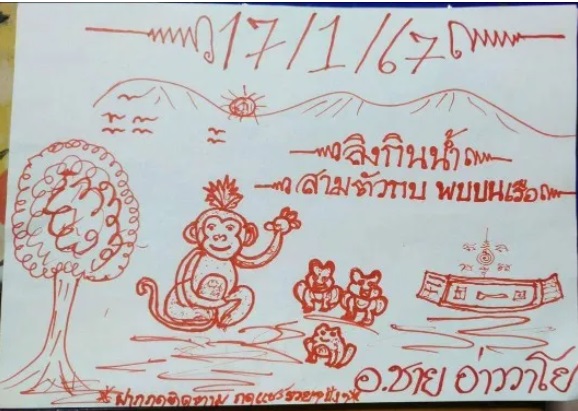 17/1/67
ลิงกินน้ำ
สามตัวกบ พบบนเรือ
อ.ชาย อ่าววาโย
ฝากกดติดตาม กดแชร์